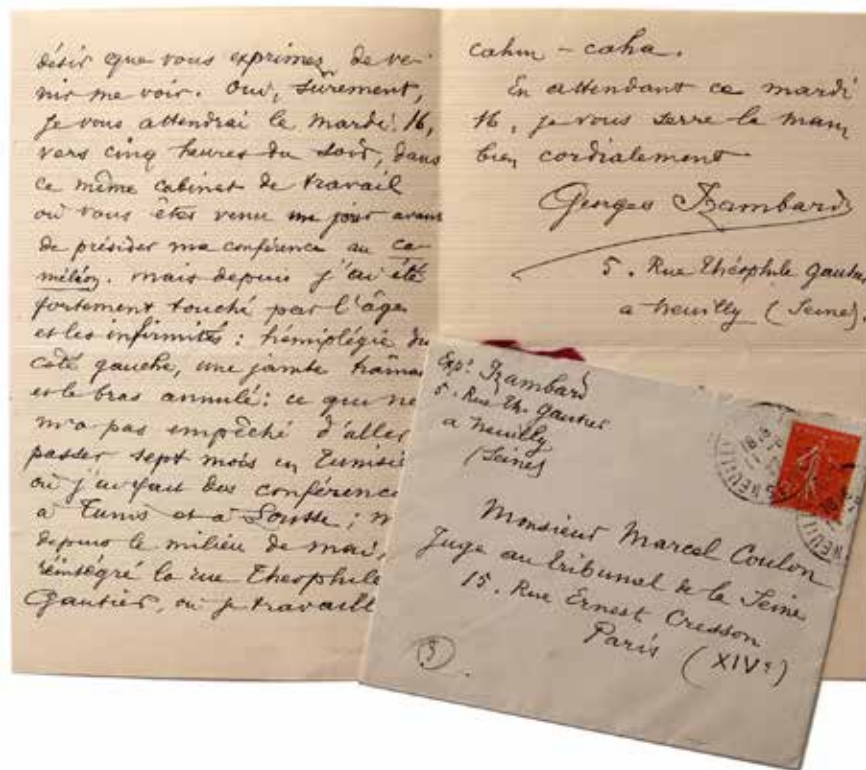 désir que vous exprimez de ve-
nir me voir. Oui, sûrement,
je vous attendrai le mardi 16,
vers cinq heures du soir, dans
ce même cabinet de travail
où vous êtes venu un jour avant
de présider ma conférence au Ca-
méléon. Mais depuis j'ai été
fortement touché par l'âge
et les infirmités : hémiplégie du
côté gauche, une jambe
et le bras annulé : ce qui ne
m'a pas empêché d'aller
passer sept mois en Tunisie
où j'ai fait des conférences
à Tunis et à Sousse ;
depuis le milieu de mai,
réintégré la rue Théophile
Gautier, où je travaill
cahin-caha.
En attendant ce mardi
16, je vous serre la main
bien cordialement
Georges Izambard
5. Rue Théophile Gautier
a Neuilly (Seine).
Expr Izambard
5. Rue Th. Gautier
a Neuilly
(Seine)
Monsieur Marcel Coulon
Juge au tribunal de la Seine
15. Rue Ernest Cresson
Paris (XIVe)
3